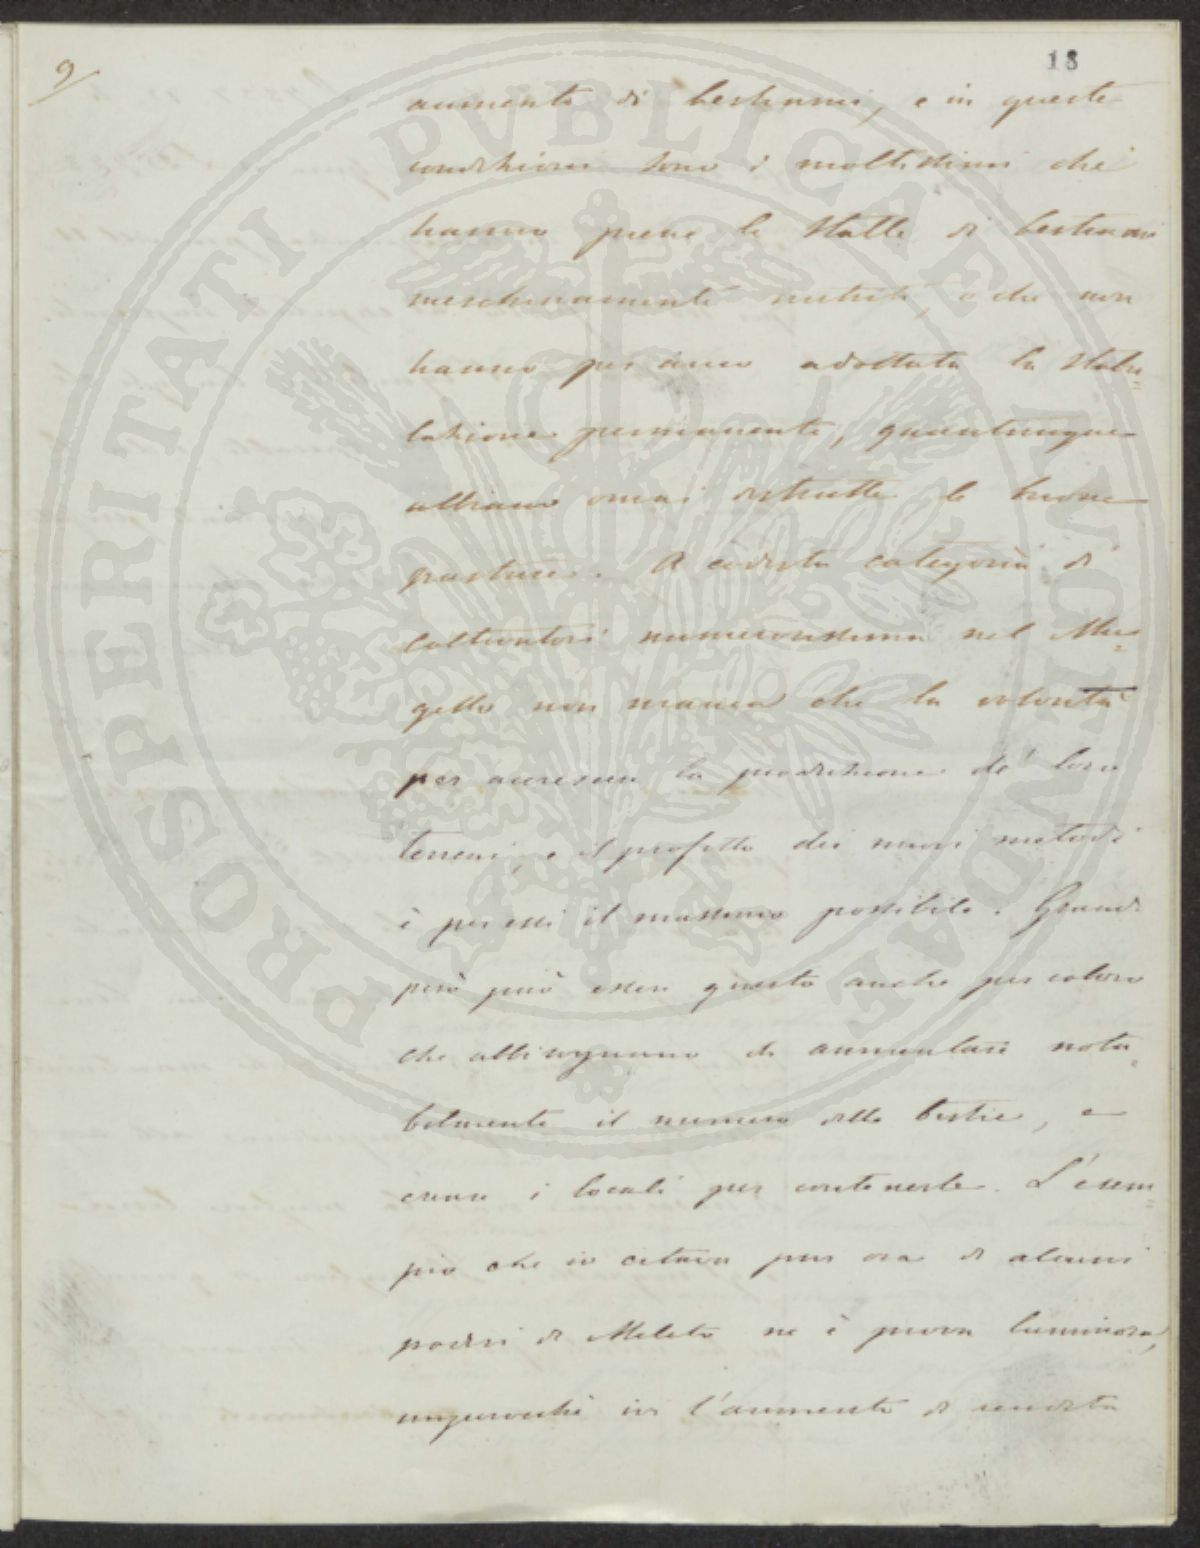 9/
18
aumento di bestiami, e in queste
condizioni sono i moltissimi che
hanno piene le stalle di bestiami
meschinamente nutriti, e che non
hanno per anco adottata la stabu=
lazione permanente, quantunque
abbiano omai distrutte le buone
pasture. A codesta categoria di
coltivatori numerosissima nel Mu=
gello non manca che la volontà
per accrescere la produzione de' loro
terreni, e il profitto dei nuovi metodi
è per essi il massimo possibile. Grande
però può esser questo anche per coloro
che abbisognano di aumentare nota=
bilmente il numero delle bestie, e
creare i locali per contenerle. L'esem=
pio che io citava pur ora di alcuni
poderi di Meleto ne è prova luminosa,
imperocchè ivi l'aumento di rendita
PROSPERITATI PVBLICAE AVGENDAE